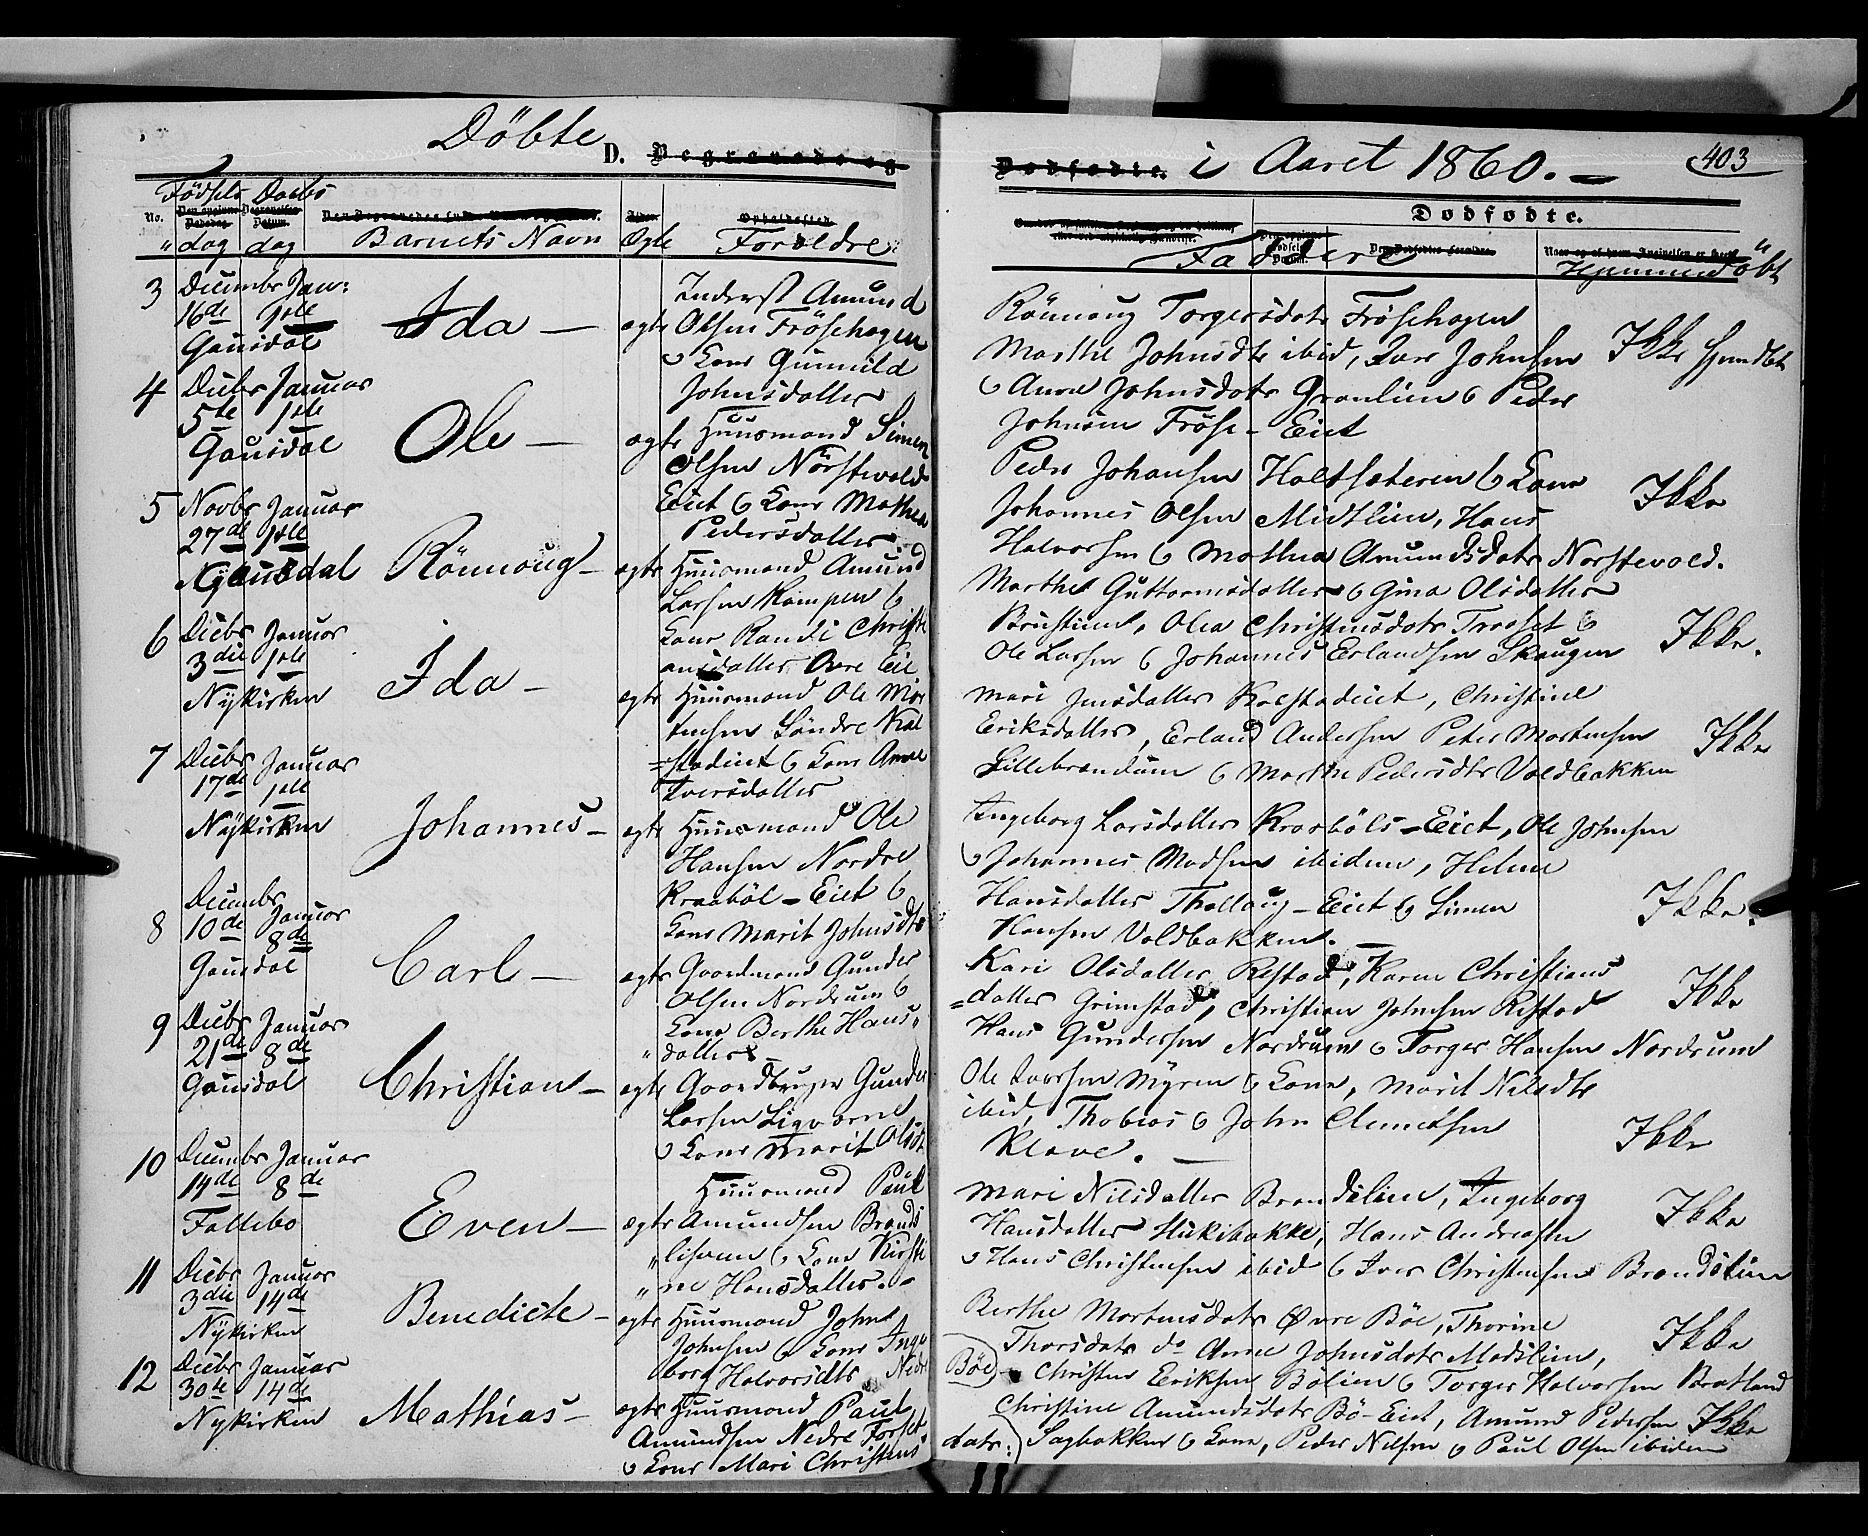 Döbte
D. Begravede og
Dødfødte. i Aaret 1860. —
403
Fødsels Daabs
No. dag dag Barnets Navn Ægte Foreldre
Dødfødte.
Faddere
Hjemmedöbt
3 Decembr Jan:
16de 1ste
Gausdal
Ida —
ægte
Inderst Amund
Olsen Frösehagen
& Kone Gunnild
Johnsdatter
Rönnaug Torgersdatr Frösehagen
Marthe Johnsdtr ibid, Iver Johnsen
& Anne Johnsdatr Granlien & Peder
Johnsen Fröse-Eiet
Ikke hjemdbt
4 Decbr Januar
5te 1ste
Gausdal
Ole —
ægte
Huusmand Simen
Olsen Nörstevold
Eiet & Kone Mathea
Pedersdatter
Peder Johansen Holtsæteren & Kone
Johannes Olsen Midtlien, Hans
Halvorsen & Mathea Amundsdatr Norstevold.
Ikke
5 Novbr Januar
27de 1ste
Gausdal
Rönnoug —
ægte
Huusmand Amund
Larsen Kampen &
Kone Randi Christi
ansdatter Øvre Eie
Marthe Guttormsdatter & Gina Olsdatter
Brustuen, Olea Christensdatr Troset &
Ole Larsen & Johannes Erlandsen Skaugen
Ikke.
6 Decbr Januar
3die 1ste
Nykirken
Ida —
ægte
Huusmand Ole Mor
tensen Söndre Kol
=stadeiet & Kone Anne
Iversdatter
Mari Jensdatter Kolstadeiet, Christine
Eriksdatter, Erland Andersen Peter Mortensen
Lillebrænden & Marthe Pedersdtr Voldbakken
Ikke
7 Decbr Januar
17de 1ste
Nykirken
Johannes —
ægte
Huusmand Ole
Hansen Nordre
Kraaböl-Eiet &
Kone Marit Johnsdtr
Ingeborg Larsdatter Kraaböls-Eiet, Ole Johnsen
& Johannes Madsen ibidem, Helene
Hansdatter Thallaug-Eiet & Simen
Hansen Voldbakken. —
Ikke.
8 Decembr
10de Januar
8de
Gausdal
Carl —
ægte
Gaardmand Gunder
Olsen Nordrum &
Kone Berthe Hans„
„datter —
Kari Olsdatter Restad, Karen Christians
=datter Grimstad, Christian Johnsen Restad
Hans Gundersen Nordrum & Torger Hansen Nordrum
Ikke
9 Decbr Januar
21de 8de
Gausdal
Christian —
ægte
Gaardbruger Gunder
Larsen
& Kone Marit Olsdt
Ole Iversen Myren & Kone, Marit Nilsdtr
ibid, Thobias & John Clemetsen
Klave. —
Ikke
10 Decembr Januar
14de 8de
Follebo
Even —
ægte
Huusmand Paul
Amundsen Brands
„lien & Kone Kirsti
„ne Hansdatter. -
Mari Nilsdatter Brandslien, Ingeborg
Hansdatter, Hans Andreasen
& Hans Christensen ibid & Iver Christensen Brandslien
Ikke
11 Decbr Januar
3die 14de
Nykirken
Benedicte —
ægte
Huusmand John
Johnsen & Kone Inge
borg Halvorsdtr Nedr
Böe
Berthe Mortensdatr Øvre Böe, Thorine
Thorsdatr do Anne Johnsdatr Madslien,
Christen Eriksen Bölien & Torger Halvorsen Bratland
Ikke
12 Decbr Januar
30te 14de
Nykirken
Mathias —
ægte
Huusmand Paul
Amundsen Nedre Forset
& Kone Mari Christens
datr.
Christine Amundsdatr Bö-Eiet, Amund Pedersen
Sagbakken & Kone, Peder Nilsen & Paul Olsen ibidem
Ikke